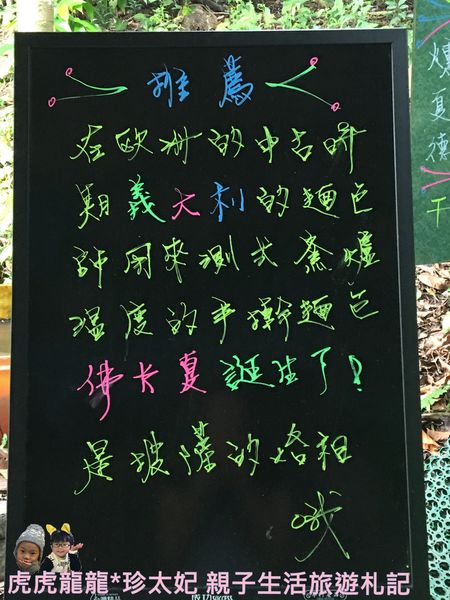 推薦
在歐洲的中古時
期義大利的麵包
師用來測式窯爐
溫度的手擀麵包
佛卡夏誕生了!
是披薩的始祖
哦
爆
夏
德
干
虎虎龍龍*珍太妃 親子生活旅遊札記